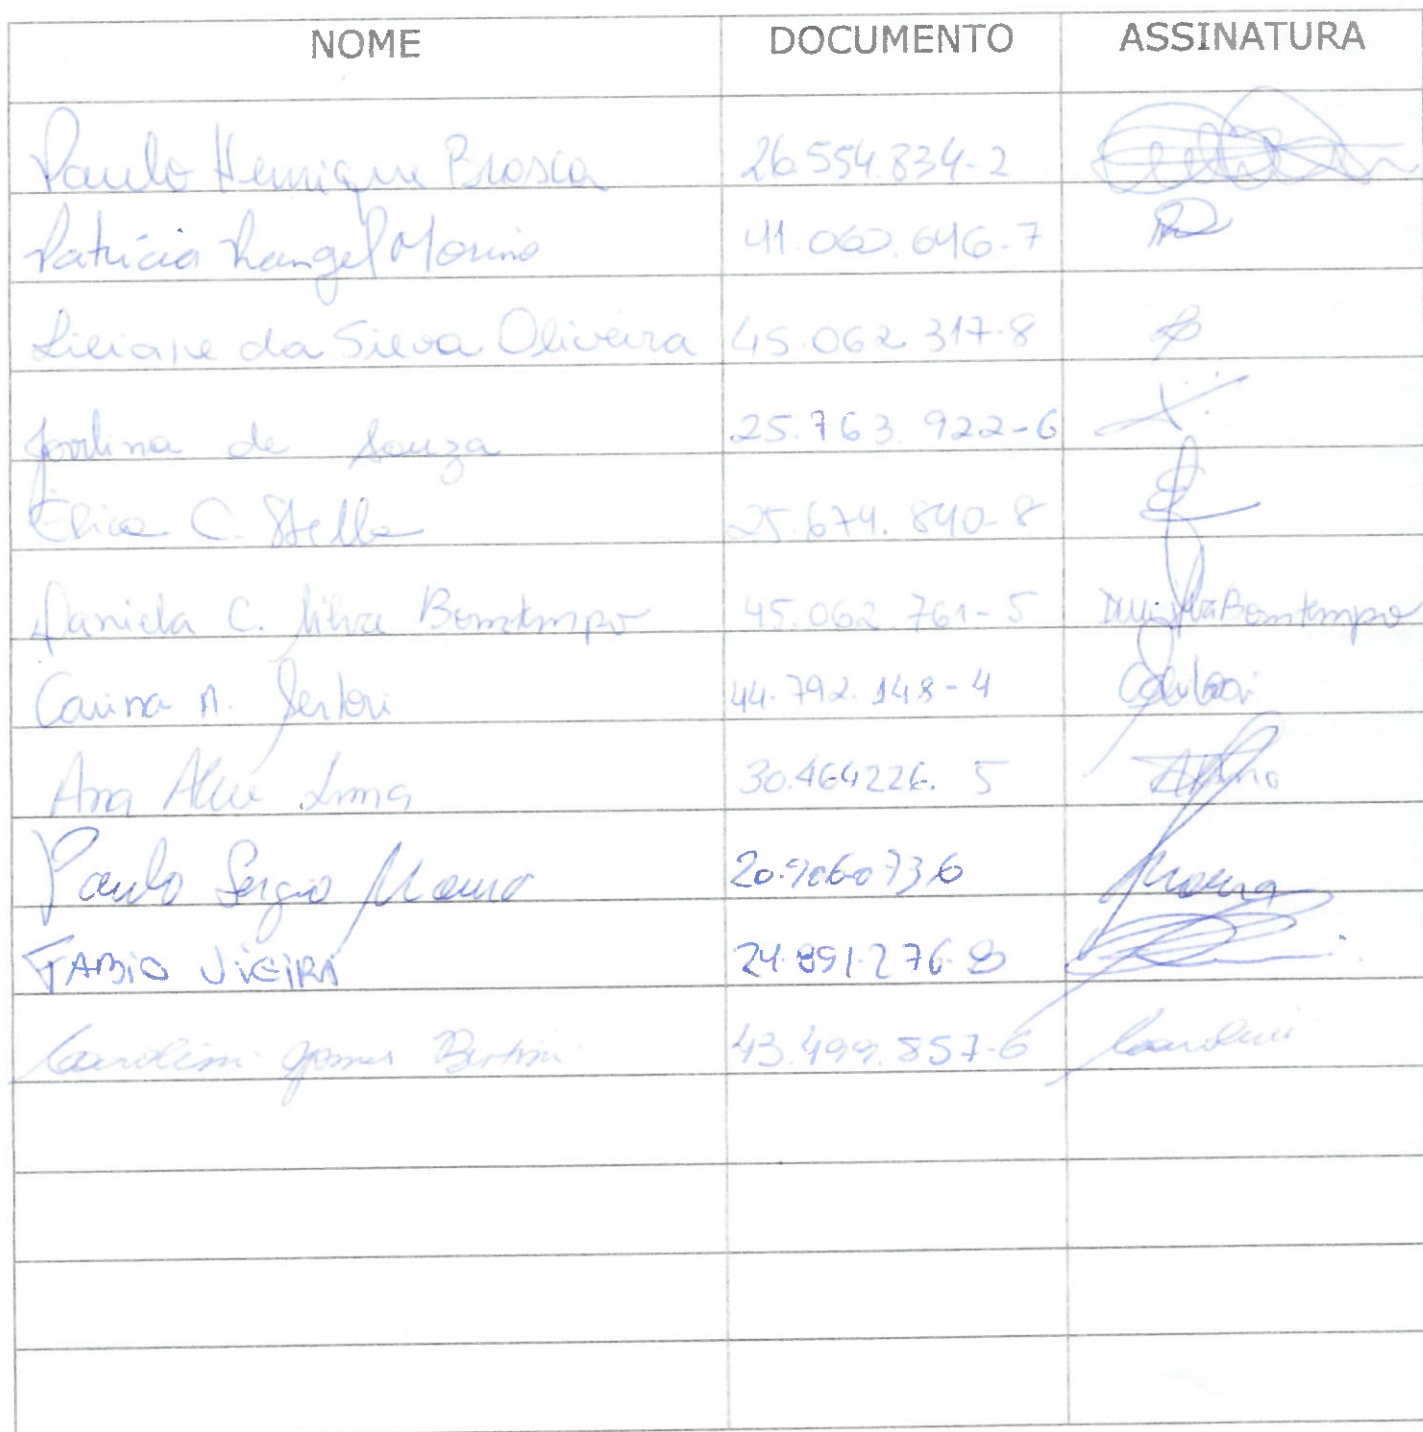 NOME DOCUMENTO ASSINATURA
Paulo Henrique Brosca 26.554.834-2
Patrícia Rangel Morino 41.060.646-7
Liliane da Silva Oliveira 45.062.317-8
de Souza 25.763.922-6
Érica C. Stella 25.674.840-8
Daniela C. Silva Bomtempo 45.062.761-5 Bomtempo
Carina M. Sertori 44.792.148-4
Ana Lima 30.464226.5
Paulo Sergio Moura Moura
FABIO VIEIRA 24.891.276-8
Gomes 43.499.857-6